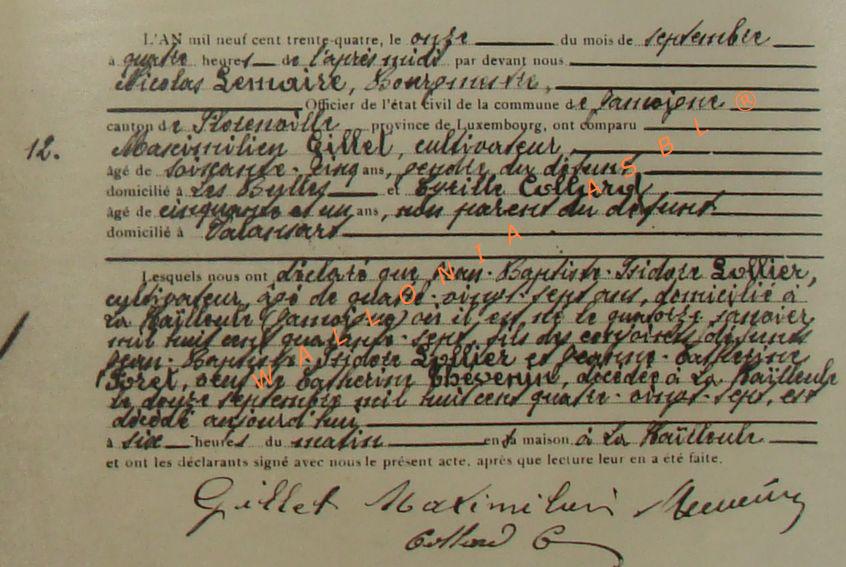 L'AN mil neuf cent trente-quatre, le onze du mois de septembre
à quatre heures de l'après midi par devant nous
Nicolas Lemaire, Bourgmestre,
Officier de l'état civil de la commune de Jamoigne
canton de Florenville province de Luxembourg, ont comparu
12. Maximilien Gillet, cultivateur,
âgé de soixante-cinq ans, gendre du défunt
domicilié à Les Bulles et Cyrille Collard,
âgé de cinquante et un ans, non parent du défunt
domicilié à Valansart
Lesquels nous ont déclaré que Jean-Baptiste-Isidore Lollier,
cultivateur, âgé de quatre-vingt-sept ans, domicilié à
La Haïlleule (Jamoigne) où il est né le quatorze janvier
mil huit cent quarante-sept, fils des conjoints défunts
Jean-Baptiste-Isidore Lollier et Jeanne-Catherine
Foret, veuf de Catherine Thévenin, décédée à La Haïlleule
le douze septembre mil huit cent quatre-vingt-sept, est
décédé aujourd'hui
à six heures du matin en sa maison à La Haïlleule
et ont les déclarants signé avec nous le présent acte, après que lecture leur en a été faite.
Gillet Maximilien
Collard C
WALLONIA ASBL ®